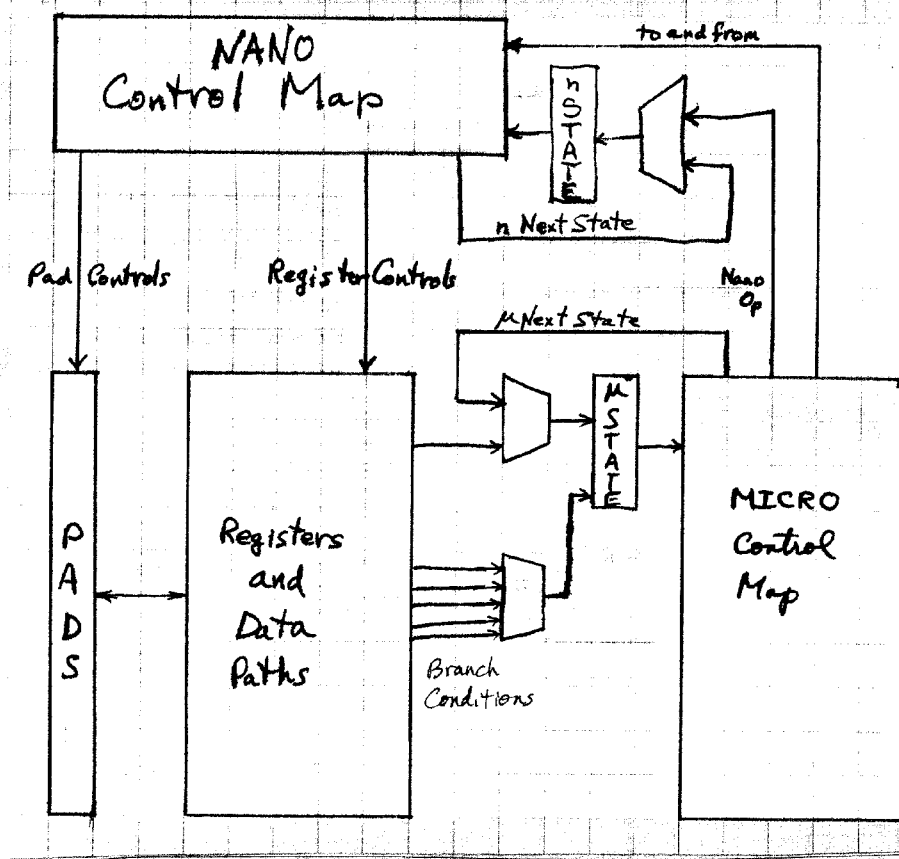 NANO
Control Map
to and from
n STATE
n Next State
Pad Controls
Register Controls
Nano
Op
μ Next State
μ STATE
PADS
Registers
and
Data
Paths
MICRO
Control
Map
Branch
Conditions